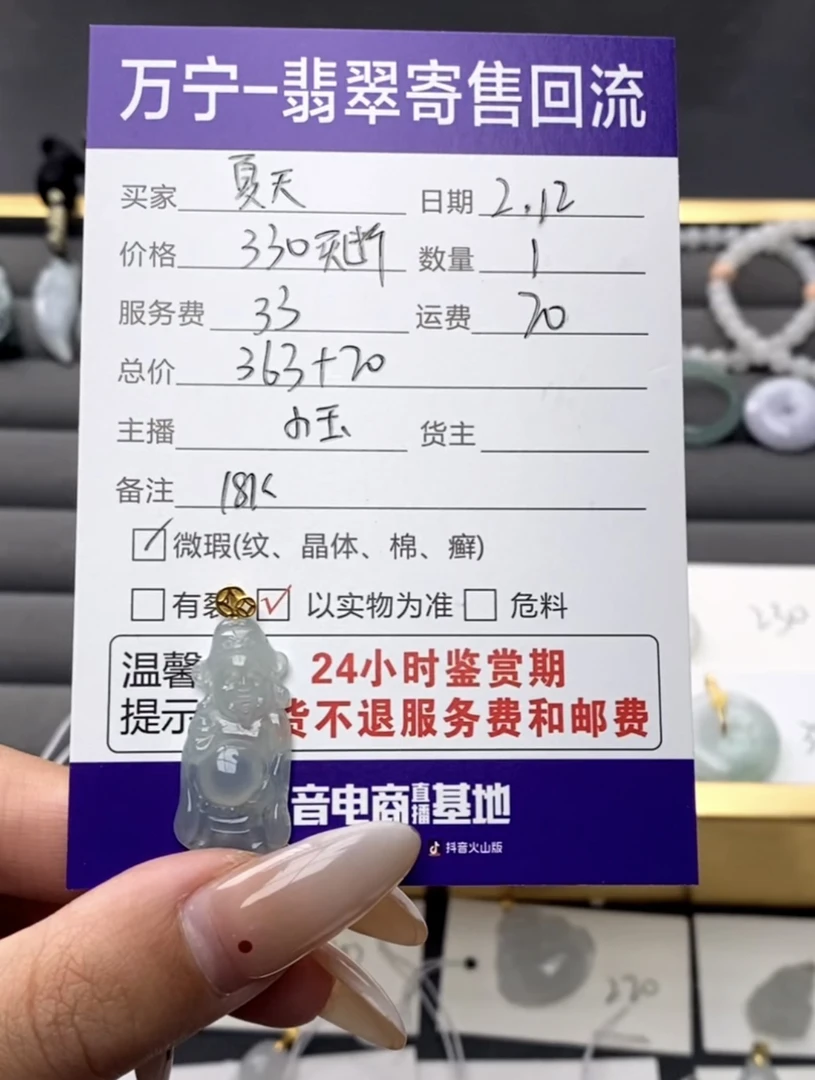 万宁-翡翠寄售回流
买家 夏天 日期 2.12
价格 330买断 数量 1
服务费 33 运费 20
总价 363+20
主播 小玉 货主
备注 18K
微瑕(纹、晶体、棉、癣)
有裂 以实物为准 危料
温馨 24小时鉴赏期
提示 货不退服务费和邮费
音电商直播基地
抖音火山版
230
220